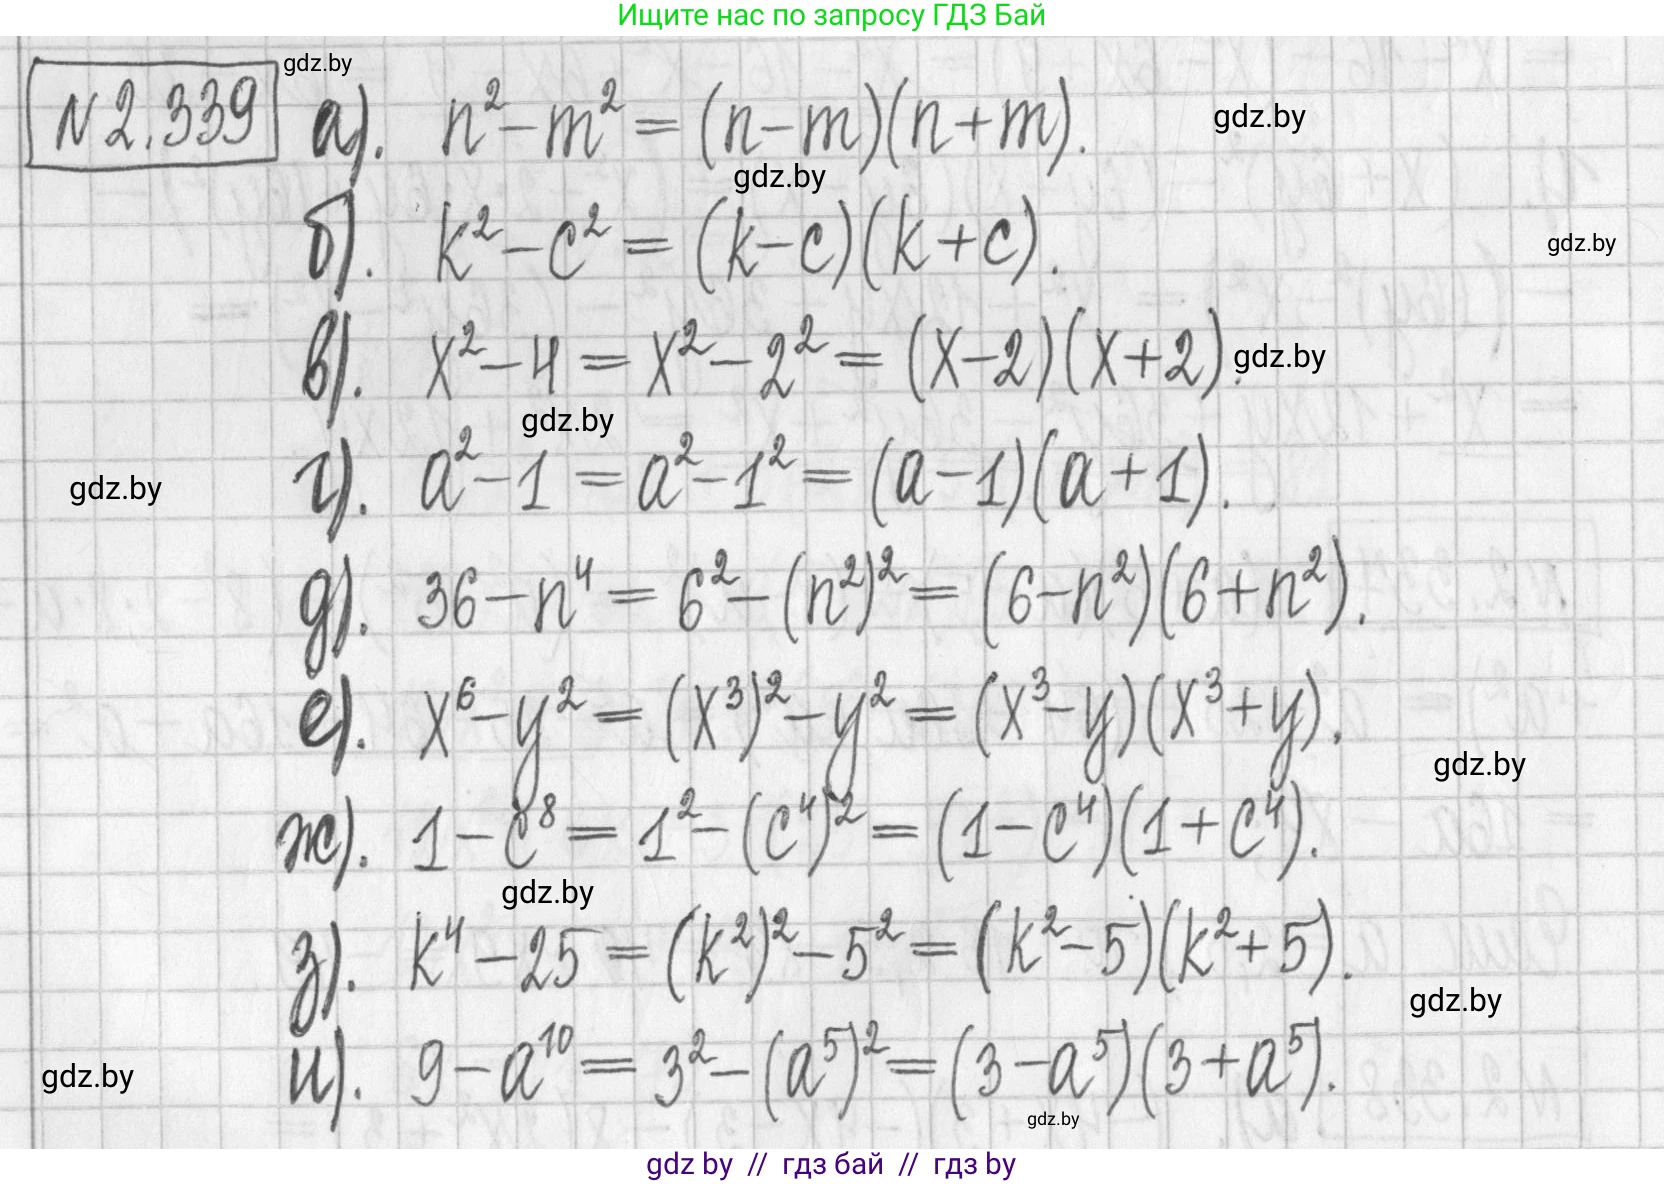 Ищите нас по запросу ГДЗ Бай
N2.339 gdz.by а). n² – m² = (n – m)(n + m). gdz.by
gdz.by
б). k² – c² = (k – c)(k + c). gdz.by
в). x² – 4 = x² – 2² = (x – 2)(x + 2). gdz.by
gdz.by
gdz.by г). a² – 1 = a² – 1² = (a – 1)(a + 1).
д). 36 – n⁴ = 6² – (n²)² = (6 – n²)(6 + n²).
е). x⁶ – y² = (x³)² – y² = (x³ – y)(x³ + y).
gdz.by
ж). 1 – c⁸ = 1² – (c⁴)² = (1 – c⁴)(1 + c⁴).
gdz.by
з). k⁴ – 25 = (k²)² – 5² = (k² – 5)(k² + 5).
gdz.by
gdz.by и). 9 – a¹⁰ = 3² – (a⁵)² = (3 – a⁵)(3 + a⁵).
gdz.by
gdz by // гдз бай // гдз by